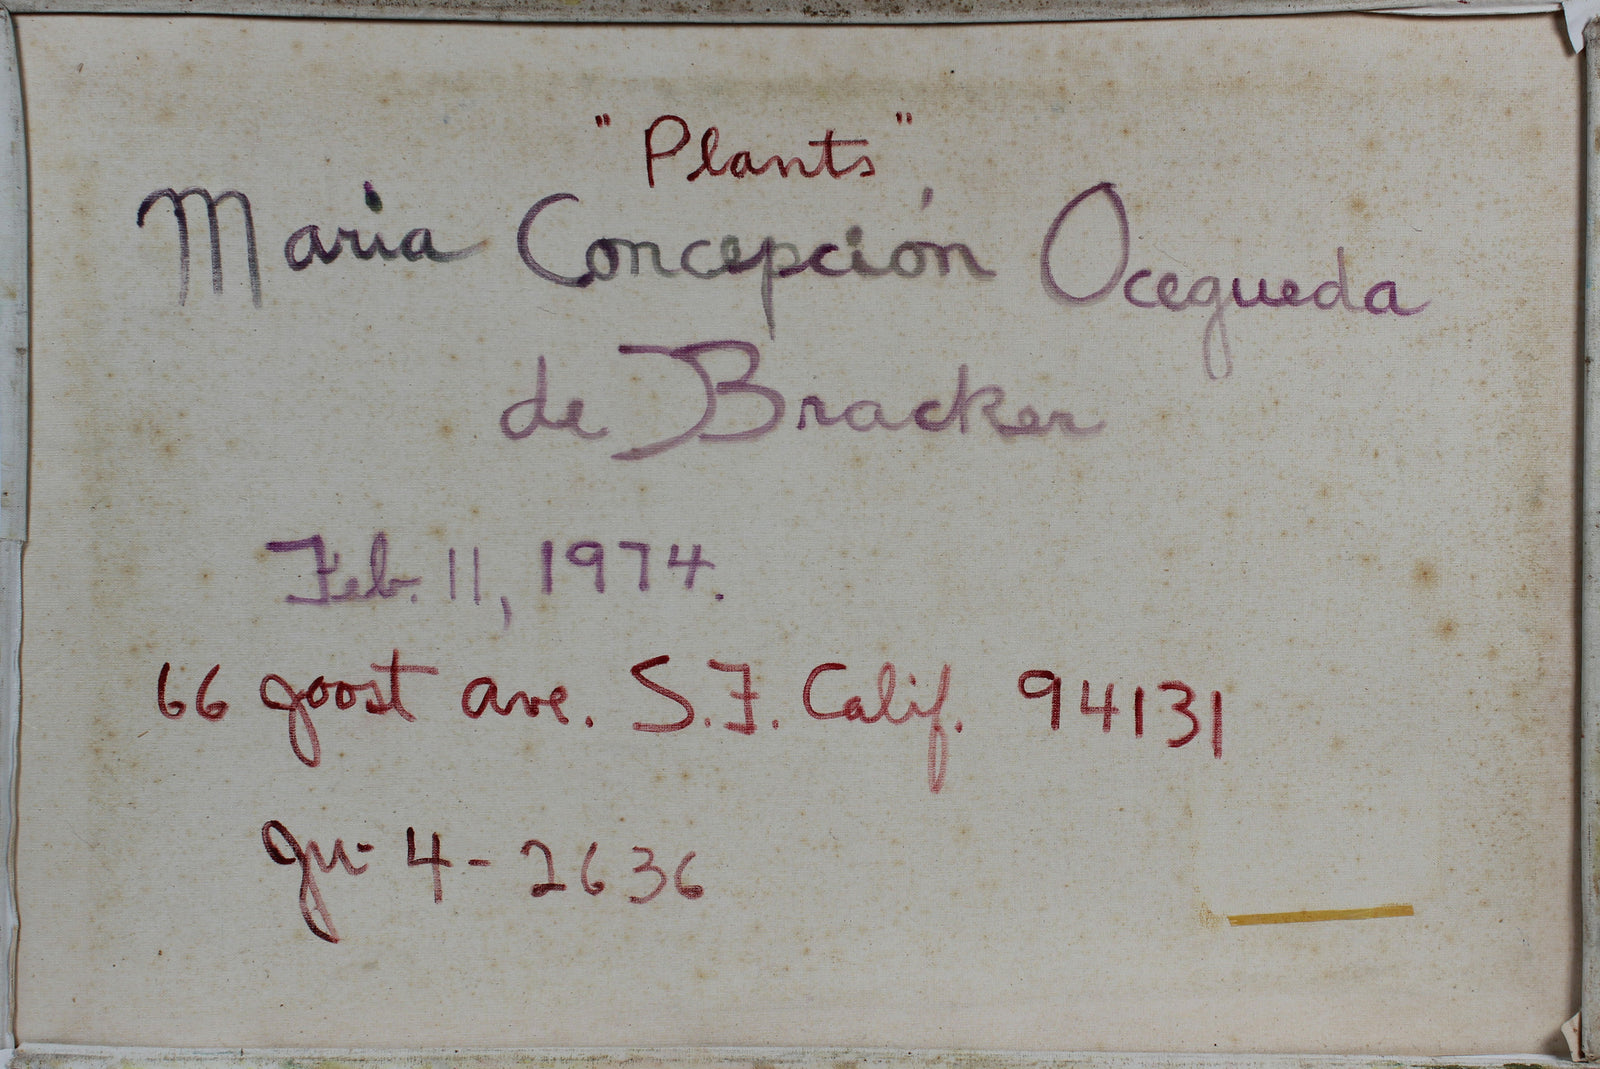 "Plants"
Maria Concepción Ocegueda
de Bracker
Feb. 11, 1974.
66 Joost ave. S.F. Calif. 94131
Ju- 4-2636